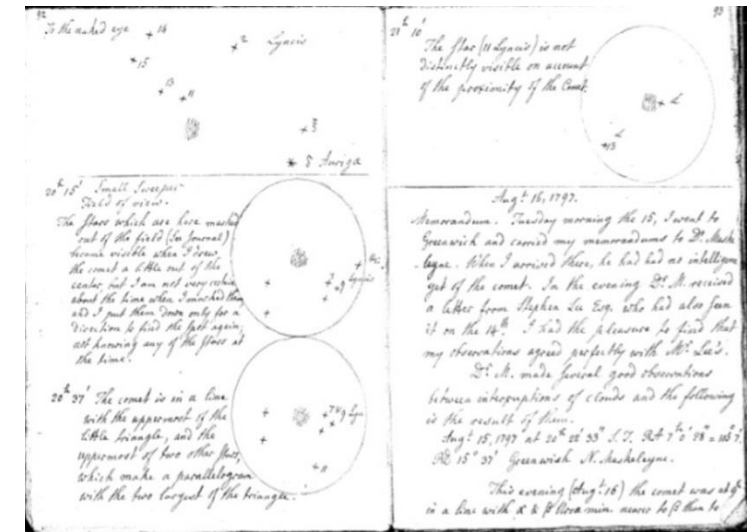 92
To the naked eye
14
2 Lyncis
15
13
11
δ Auriga
20h 15' Small Sweeper
Field of view.
The Stars which are here marked
out of the field (See Journal)
became visible when I drew
the comet a little out of the
center, but I am not very certain
about the time when I marked them
and I put them down only for a
direction to find the spot again,
not knowing any of the stars at
the time.
Lyncis
20h 37' The comet is in a line
with the uppermost of the
little triangle, and the
uppermost of two other stars,
which make a parallelogram
with the two largest of the triangle.
7 & 9 Lyn
11
93
21h 10'
The Star (11 Lyncis) is not
distinctly visible on account
of the proximity of the Comet.
13
Augt 16, 1797.
Memorandum. Tuesday morning the 15, I went to
Greenwich and carried my memorandums to Dr. Maske
leyne. When I arrived there, he had had no intelligence
yet of the comet. In the evening Dr. M. received
a letter from Stephen Lee Esq. who had also seen
it on the 14th. I had the pleasure to find that
my observations agreed perfectly with Mr. Lee's.
Dr. M. made several good observations
between interruptions of clouds and the following
is the result of them.
Augt 15, 1797 at 20h 22' 33" S.T. RA 7h 0' 28" = 105° 7'
PD 15° 37' Greenwich N. Maskeleyne.
This evening (Augt 16) the comet was at 9h
in a line with α & β Ursa min. nearer to β than to